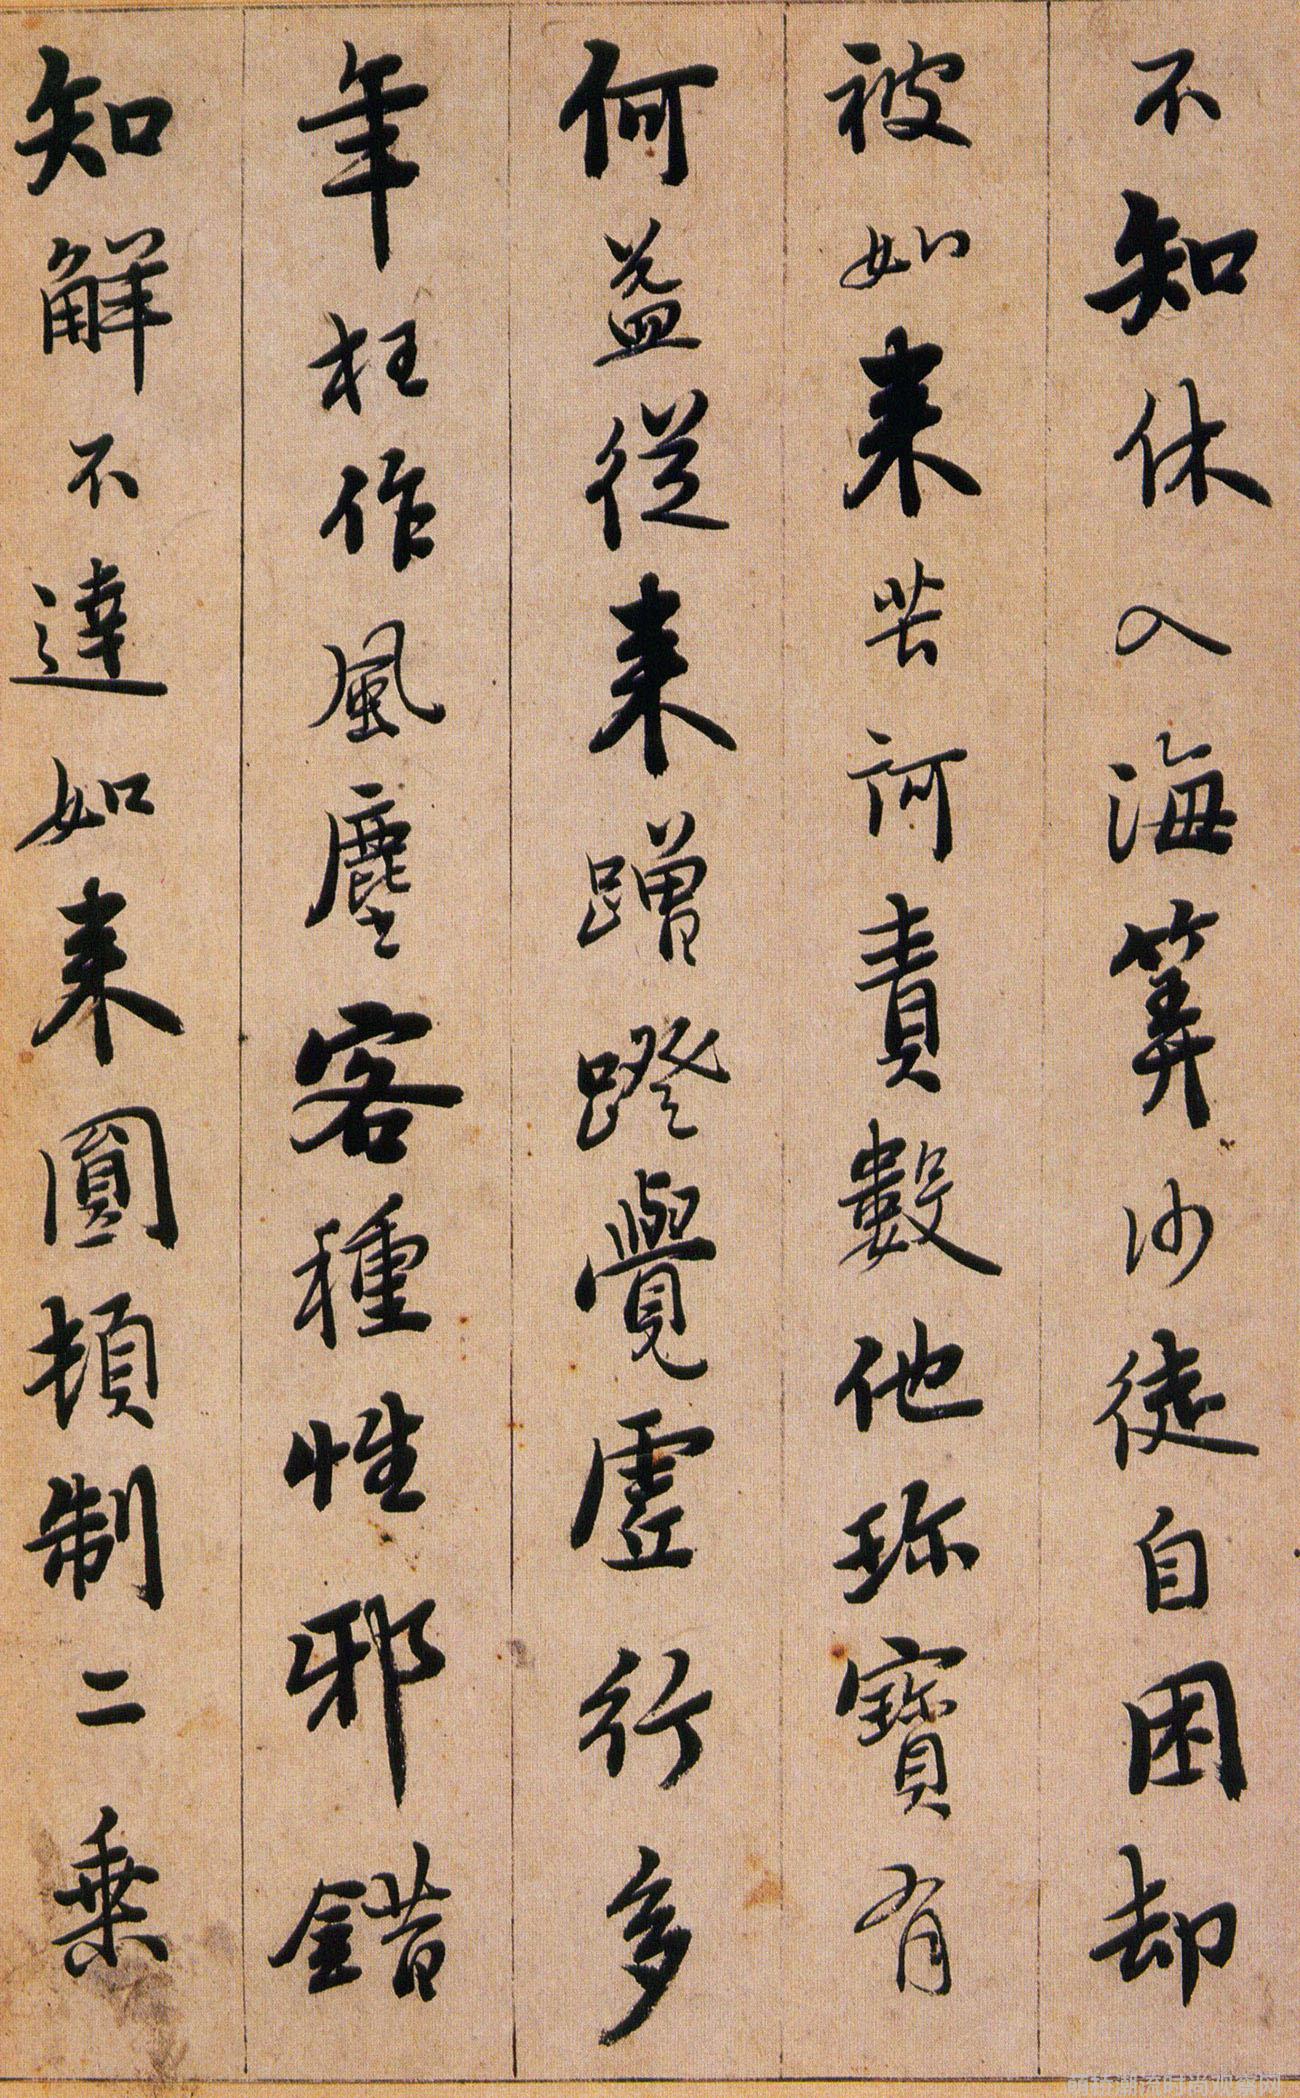 不知休入海筭沙徒自困却
被如来苦訶責數他珎寶有
何益從来蹭蹬覺虛行多
年枉作風塵客種性邪錯
知解不達如来圓頓制二乗